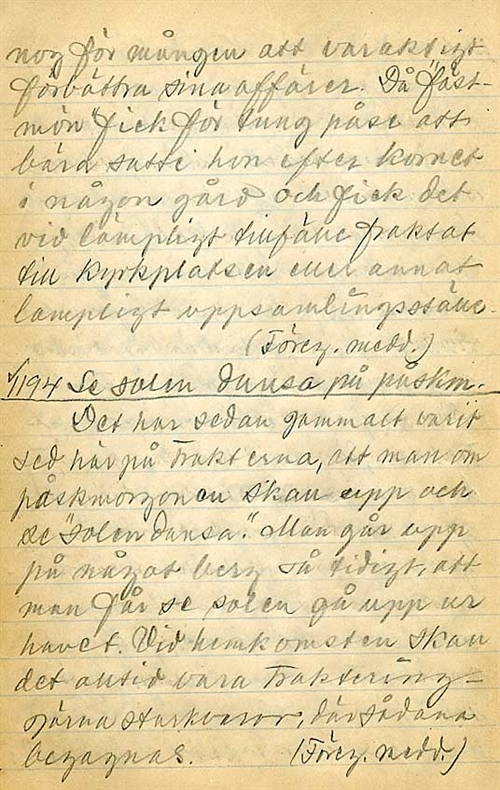 nog för mången att varaktigt
förbättra sina affärer. Då "fäst-
mön" fick för tung påse att
bära satte hon efter kornet
i någon gård och fick det
vid lämpligt tillfälle fraktat
till kyrkplatsen eller annat
lämpligt uppsamlingsställe.
(Föreg. medd.)
1194 Se solen dansa på påskm.
Det har sedan gammalt varit
sed här på trakterna, att man om
påskmorgonen skall upp och
se "solen dansa." Man går upp
på något berg så tidigt, att
man får se solen gå upp ur
havet. Vid hemkomsten skall
det alltid vara traktering-
gärna starkvaror, där sådana
begagnas. (Föreg. medd.)